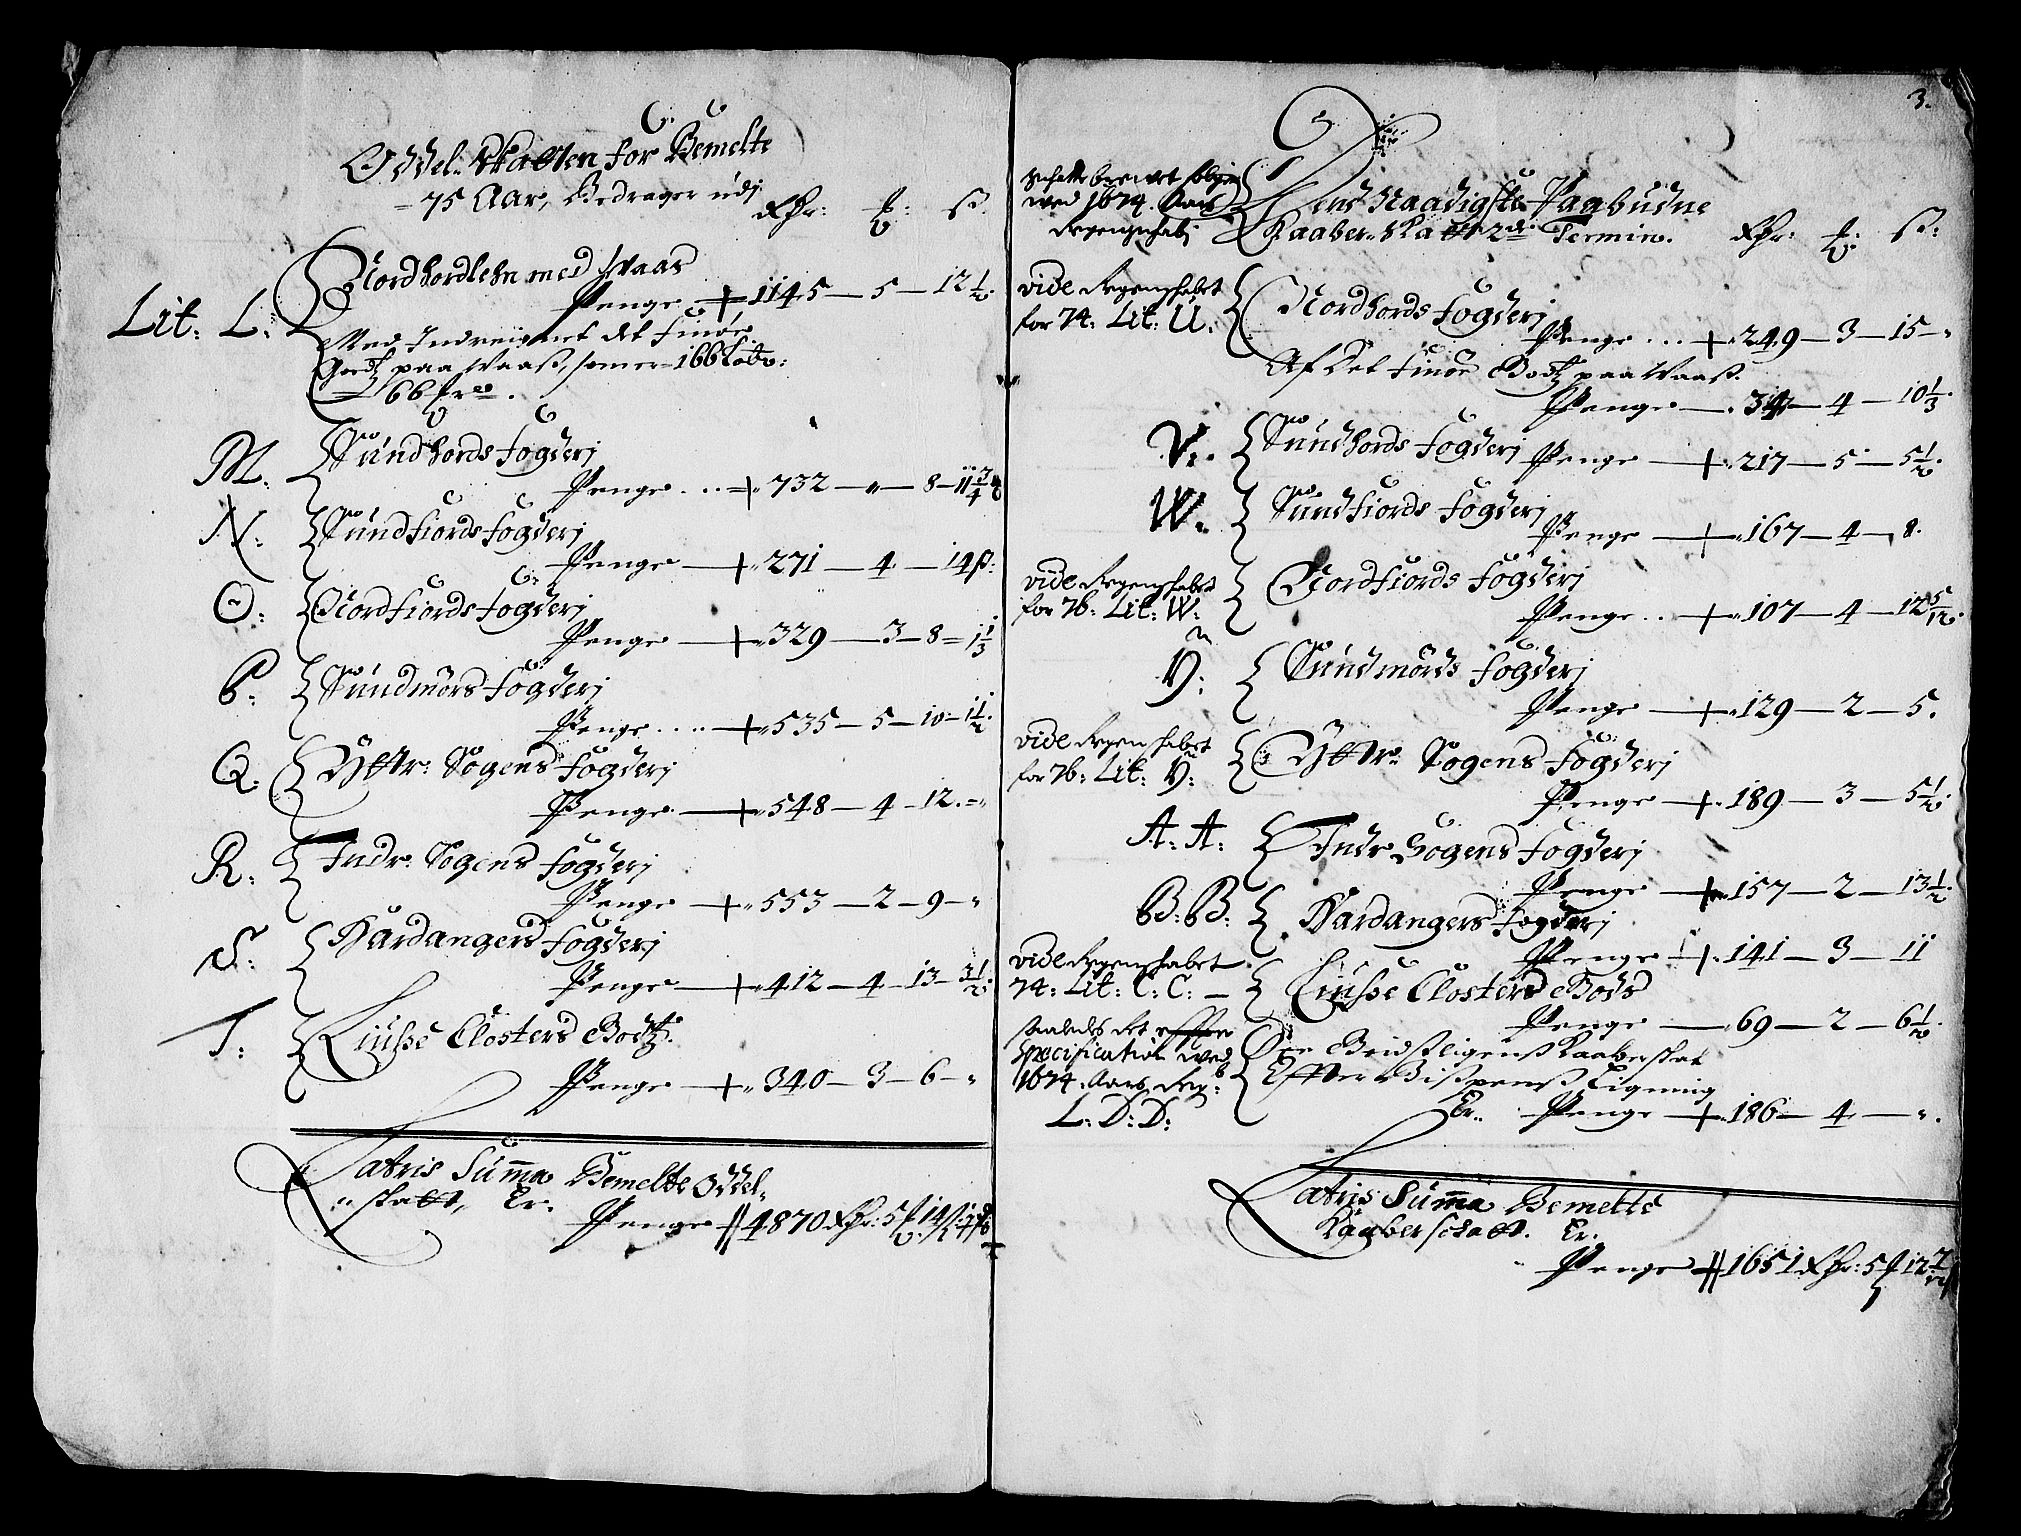 Oddel: Skatten for Bemelte
75 Aar, Bedrager udj
Rdr: ß.
Lit: L: Nordhordlehn med Waas
Penge + 1145 — 5 — 12 1/2
Med Indreignet det Finde
Godtz paa Waass, som er 166
66
M. Sundhords fogderj
Penge + 732 — „ — 8 — 11 3/4
N: Sundfiords fogderj
Penge + 271 — 4 — 14 ß:
O: Nordfiords fogderj
Penge + 329 — 3 — 8 = 1 1/3
P: Sundmørs fogderj
Penge + 535 — 5 — 10 — 1 1/2
Q: Yttr: Sogens fogderj
Penge + 548 — 4 — 12. = „
R: Indr: Sogens fogderj
Penge + 553 — 2 — 9 — „
S: Hardangers fogderj
Penge + 412 — 4 — 13 — 3 1/2
T: Liusse Closters Godtz.
Penge + 340 — 3 — 6 — „
Latris Summa Bemelte Oddel„
„skatt, Er.
Penge 4870 Rdr: 5 14
3.
wed 1674. Aars
Regenskab
Naadigste Paabudne
Kaaber Skatt 2de Termin. Rdr: ß:
vide Regenskabet
for 74: Lit: U: Nordhords fogderj
Penge + 249 — 3 — 15 — „
Af Det Finde Godtz paa Waass.
Penge — 34 — 4 — 10 1/3
V: Sundhords fogderj Penge + 217 — 5 — 5 1/2
W. Sundfiords fogderj
Penge + 167 — 4 — 8.
vide Regenskabet
for 76: Lit: W: Nordfiords fogderj
Penge + 107 — 4 — 12 5/12
Y: Sundmørds fogderj
Penge + 129 — 2 — 5.
vide Regenskabet
for 76: Lit: Y: Yttr: Sogens fogderj
Penge + 189 — 3 — 5 1/2
A: A: Indr Sogens fogderj
Penge + 157 — 2 — 13 1/2
B: B: Hardangers fogderj
Penge + 141 — 3 — 11
vide Regenskabet
74: Lit: C: C: — Liusse Closters Gods
Penge — 69 — 2 — 6 1/2
Saaledes det
Specification wed
1674. Aars Reg:
L: D: D:
Geistligens Kaaberskat
Effter Bispens Ligning
Er. Penge + 186 — 4 — „
Latris Summa Bemelte
Kaaberschatt. Er.
Penge 1651 Rdr: 5 12 7/12